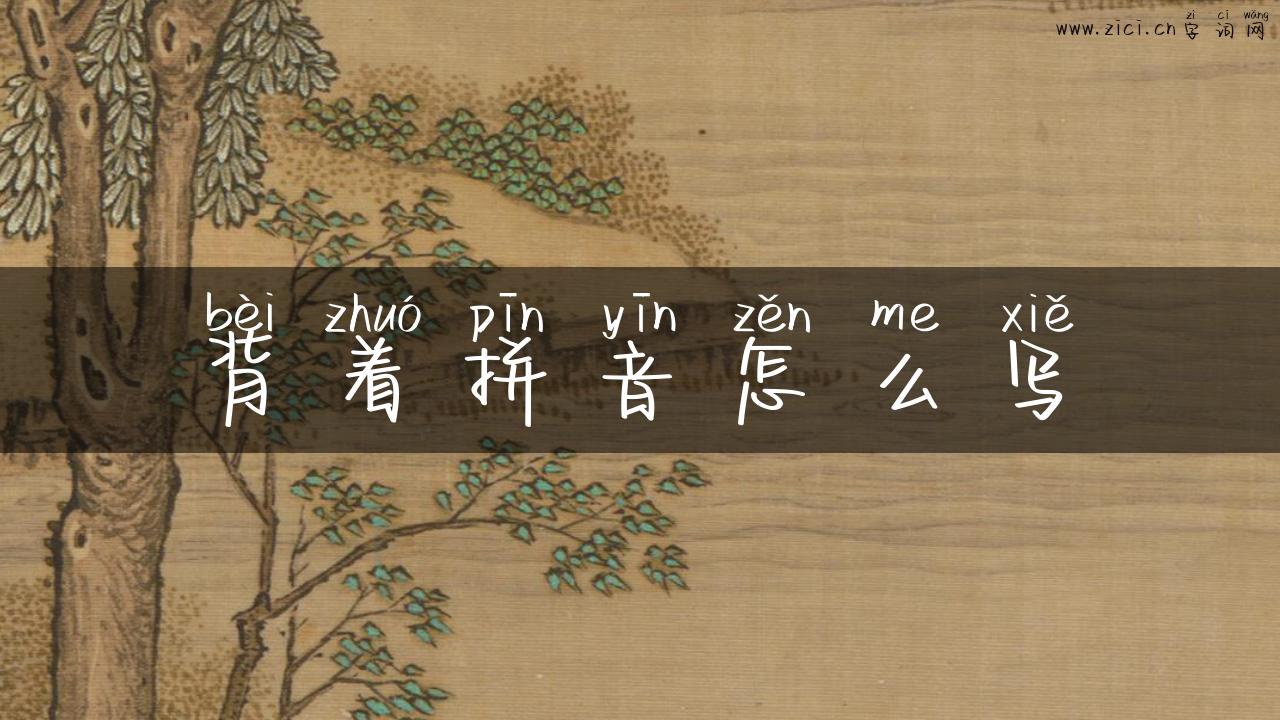 zì cí wǎng
www.zici.cn 字词网
bèi zhuó pīn yīn zěn me xiě
背着拼音怎么写